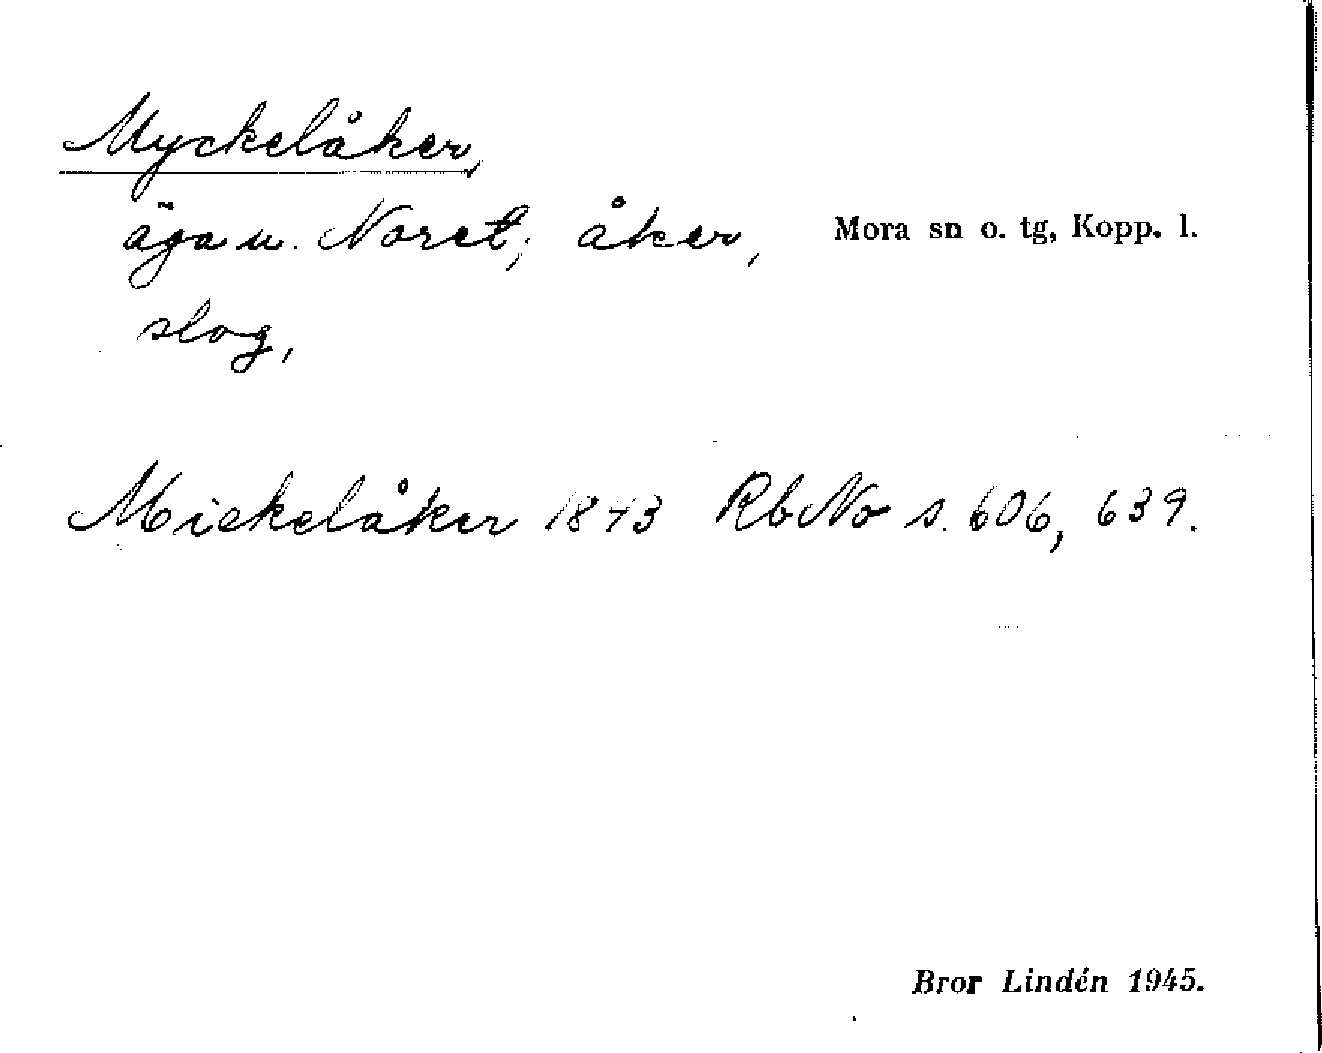 Myckelåker,
äga u. Noret; åker, Mora sn o. tg, Kopp. l.
slog,
Mickelåker 1843 RbNo s. 606, 639.
Bror Lindén 1945.